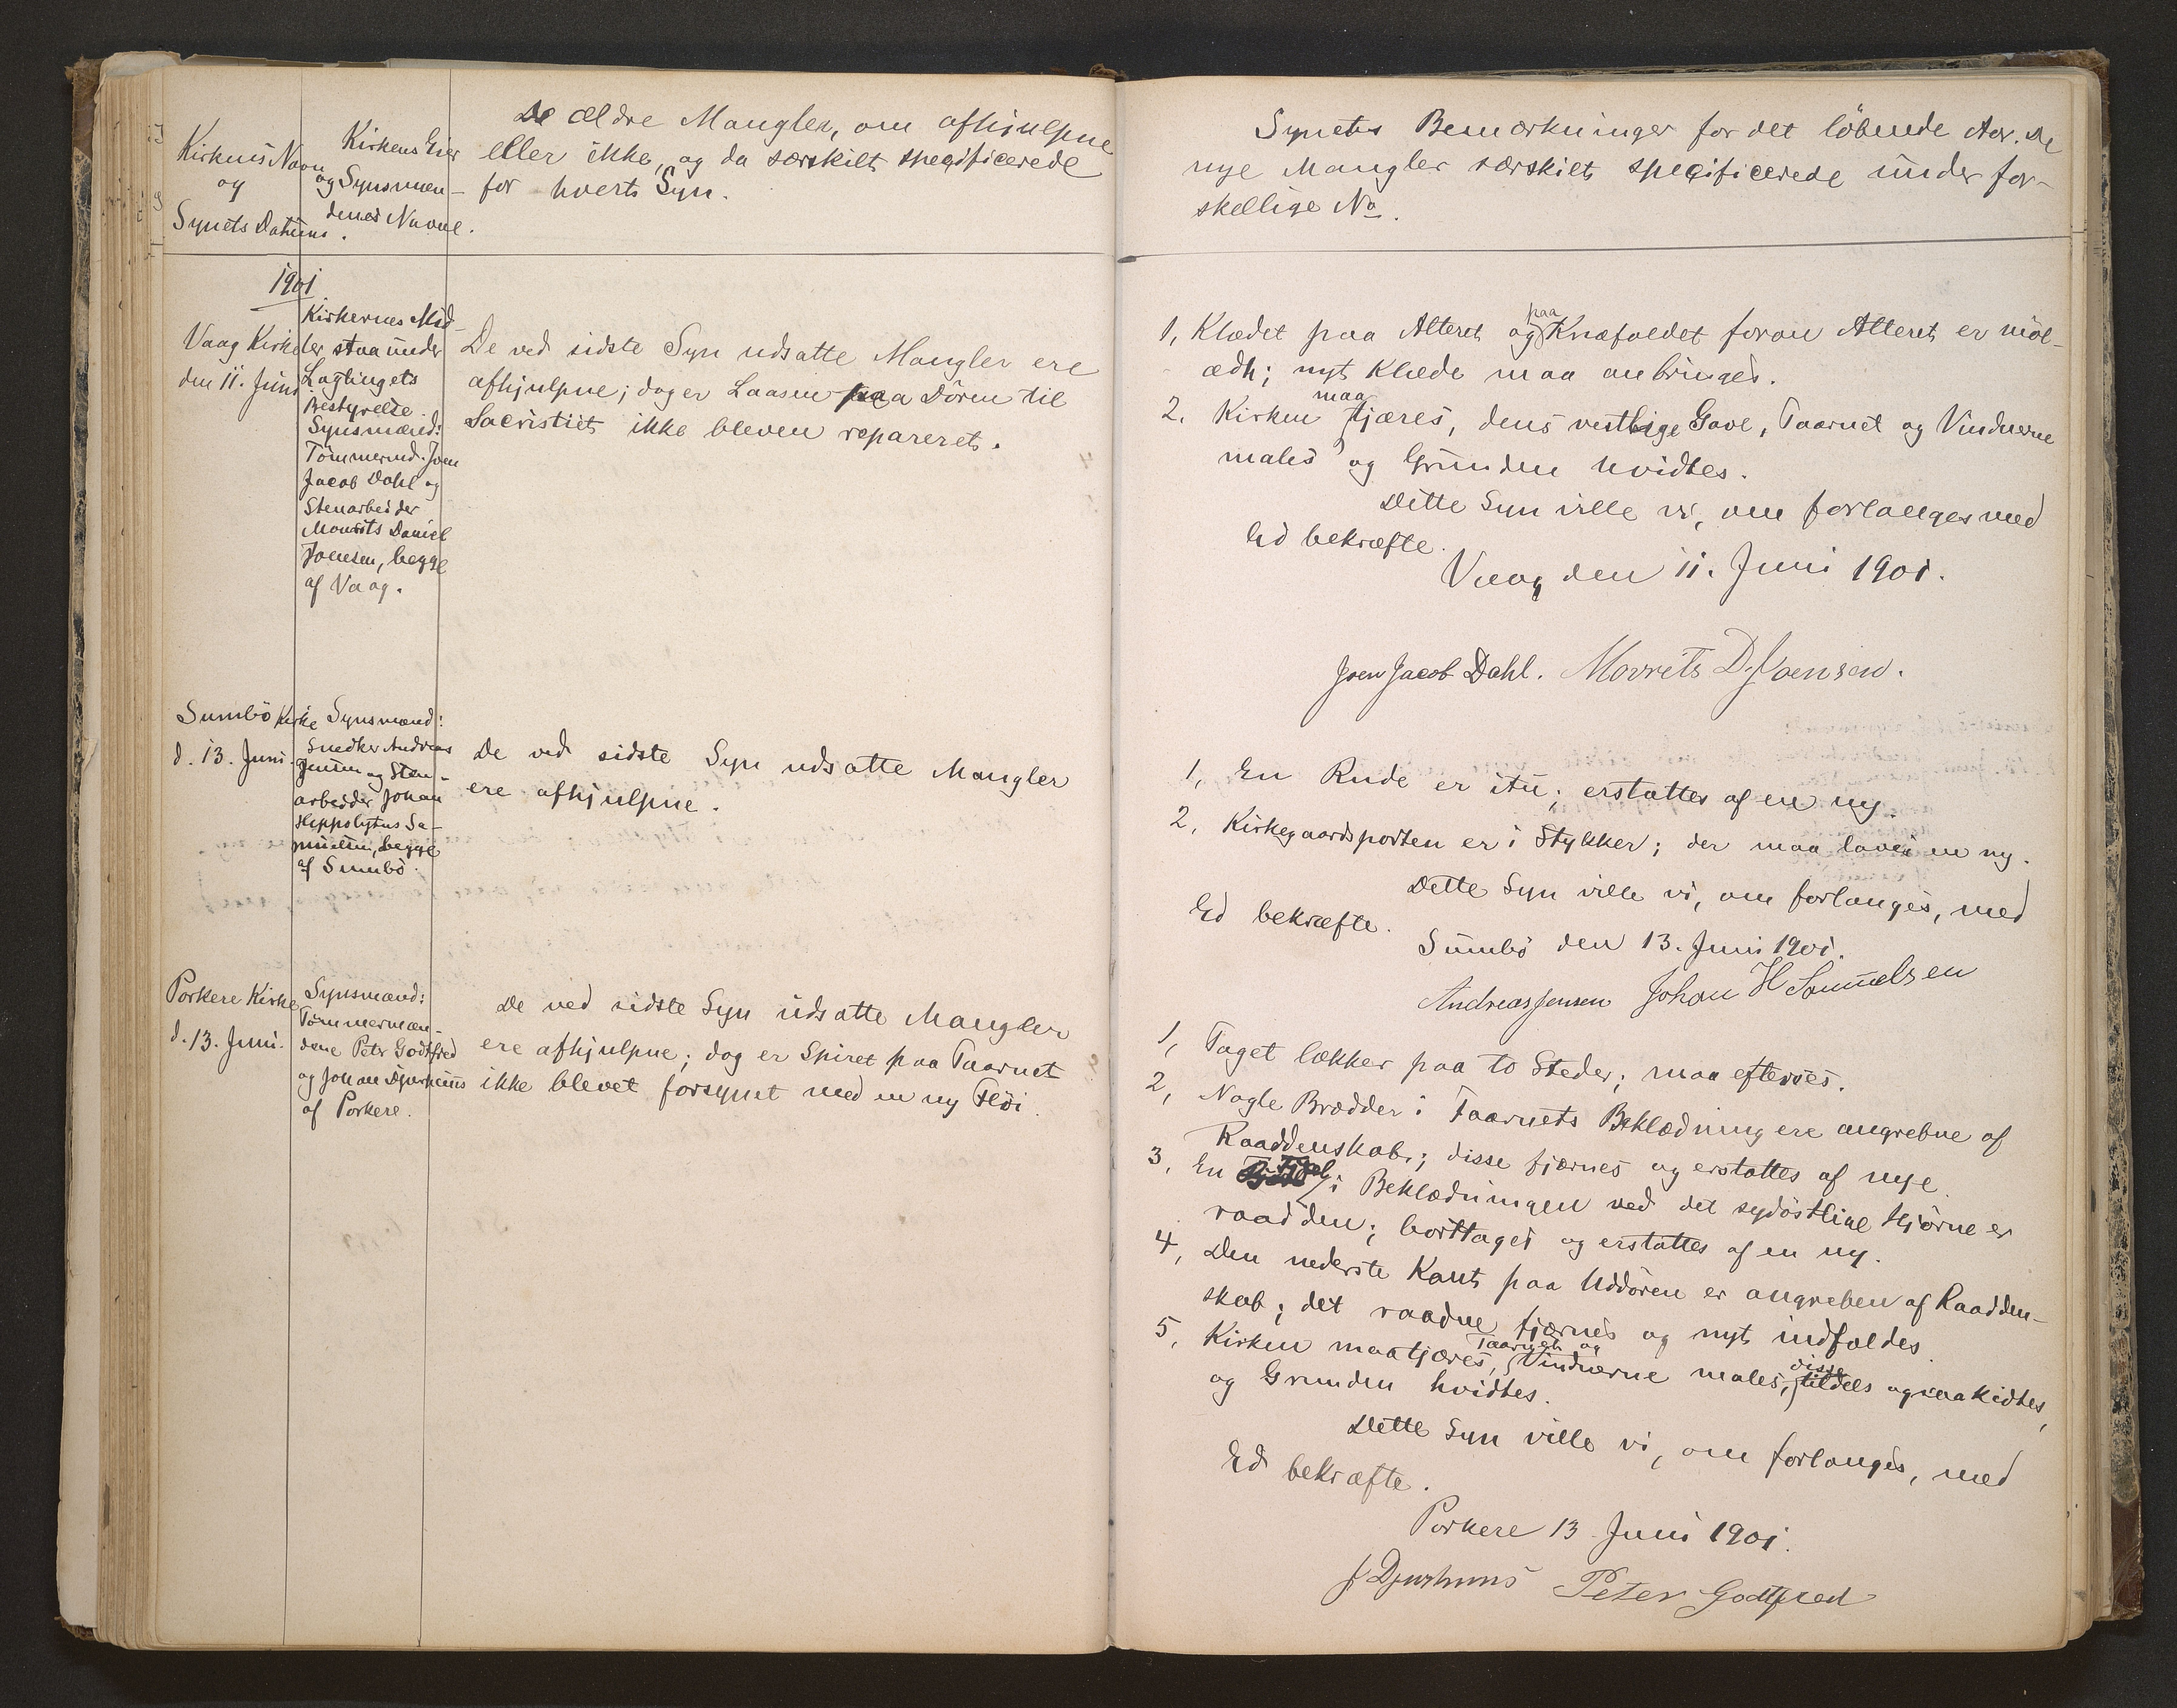 Kirkens Navn
og
Synets Datum.
Kirkens Eier
og Synsmæn-
denes Navne.
De ældre Mangler, om afhjulpne
eller ikke, og da særskilt specificerede
for hvert Syn.
1901
Vaag Kirke
den 11. Juni
Kirkernes Mid-
ler staa under
Lagtingets
Bestyrelse.
Synsmænd:
Tömmermd. Joen
Jacob Dahl og
Stenarbeider
Mourits Daniel
Joensen, begge
af Vaag.
De ved sidste Syn udsatte Mangler ere
afhjulpne; dog er Laasen paa Dören til
Sacristiet ikke bleven repareret.
Sumbö Kirke
d. 13. Juni.
Synsmænd:
Snedker Andreas
Jensen og Sten-
arbeider Johan
Hippolytus Sa-
muelsen, begge
af Sumbö.
De ved sidste Syn udsatte Mangler
ere afhjulpne.
Porkere Kirke
d. 13. Juni.
Synsmænd:
Tömmermæn-
dene Peter Godtfred
og Johan Djurhuus
af Porkere.
De ved sidste Syn udsatte Mangler
ere afhjulpne; dog er Spiret paa Taarnet
ikke blevet forsynet med en ny Flöi.
Synets Bemærkninger for det löbende Aar. De
nye Mangler særskilt specificerede under for-
skellige No.
1, Klædet paa Alteret og paa Knæfaldet foran Alteret er möl-
ædt; nyt Klæde maa anbringes.
2. Kirken maa tjæres, dens vestlige Gavl, Taarnet og Vinduerne
males og Grunden hvidtes.
Dette Syn ville vi, om forlanges med
Ed bekræfte.
Vaag den 11. Juni 1901.
Joen Jacob Dahl. Mourits D. Joensen.
1, En Rude er itu; erstattes af en ny.
2, Kirkegaardsporten er i Stykker; der maa laves en ny.
Dette Syn ville vi, om forlanges, med
Ed bekræfte.
Sumbö den 13. Juni 1901.
Andreas Jensen Johan H Samuelsen
1, Taget lækker paa to Steder; maa efterses.
2, Nogle Brædder i Taarnets Beklædning ere angrebne af
Raaddenskab; disse fjærnes og erstattes af nye.
3, En Fjæl i Beklædningen ved det sydöstlige Hjörne er
raadden; borttages og erstattes af en ny.
4, Den nederste Kant paa Uddören er angreben af Raadden-
skab; det raadne fjærnes og nyt indfældes.
5, Kirken maa tjæres, Taarnet og Vinduerne males, disse tildels ogsaa kidtes,
og Grunden hvidtes.
Dette Syn ville vi, om forlanges, med
Ed bekræfte.
Porkere 13. Juni 1901.
J Djurhuus Peter Godtfred